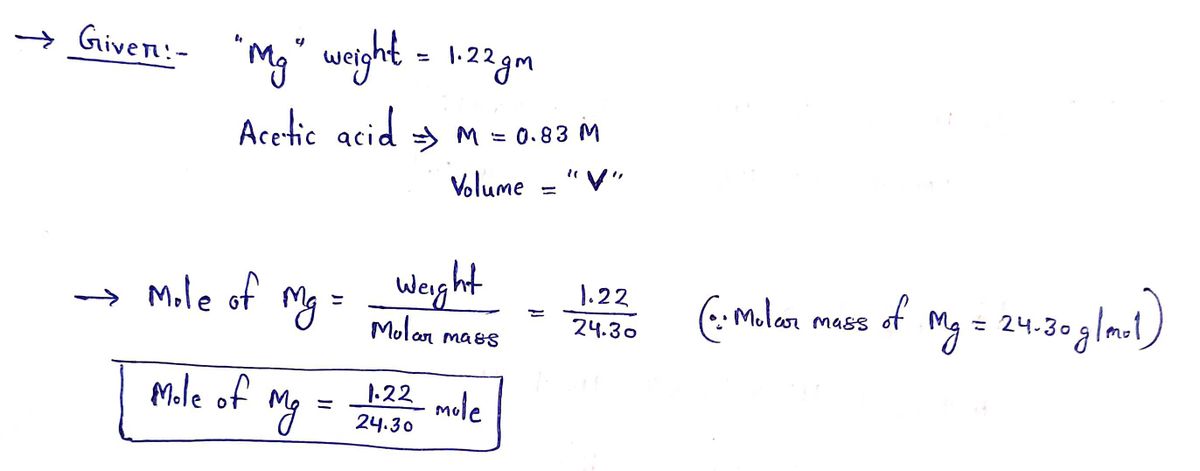 → Given:- "Mg" weight = 1.22 gm
Acetic acid ⇒ M = 0.83 M
Volume = "V"
→ Mole of Mg = Weight / Molar mass = 1.22 / 24.30 (∵ Molar mass of Mg = 24.30 g/mol)
Mole of Mg = 1.22 / 24.30 mole